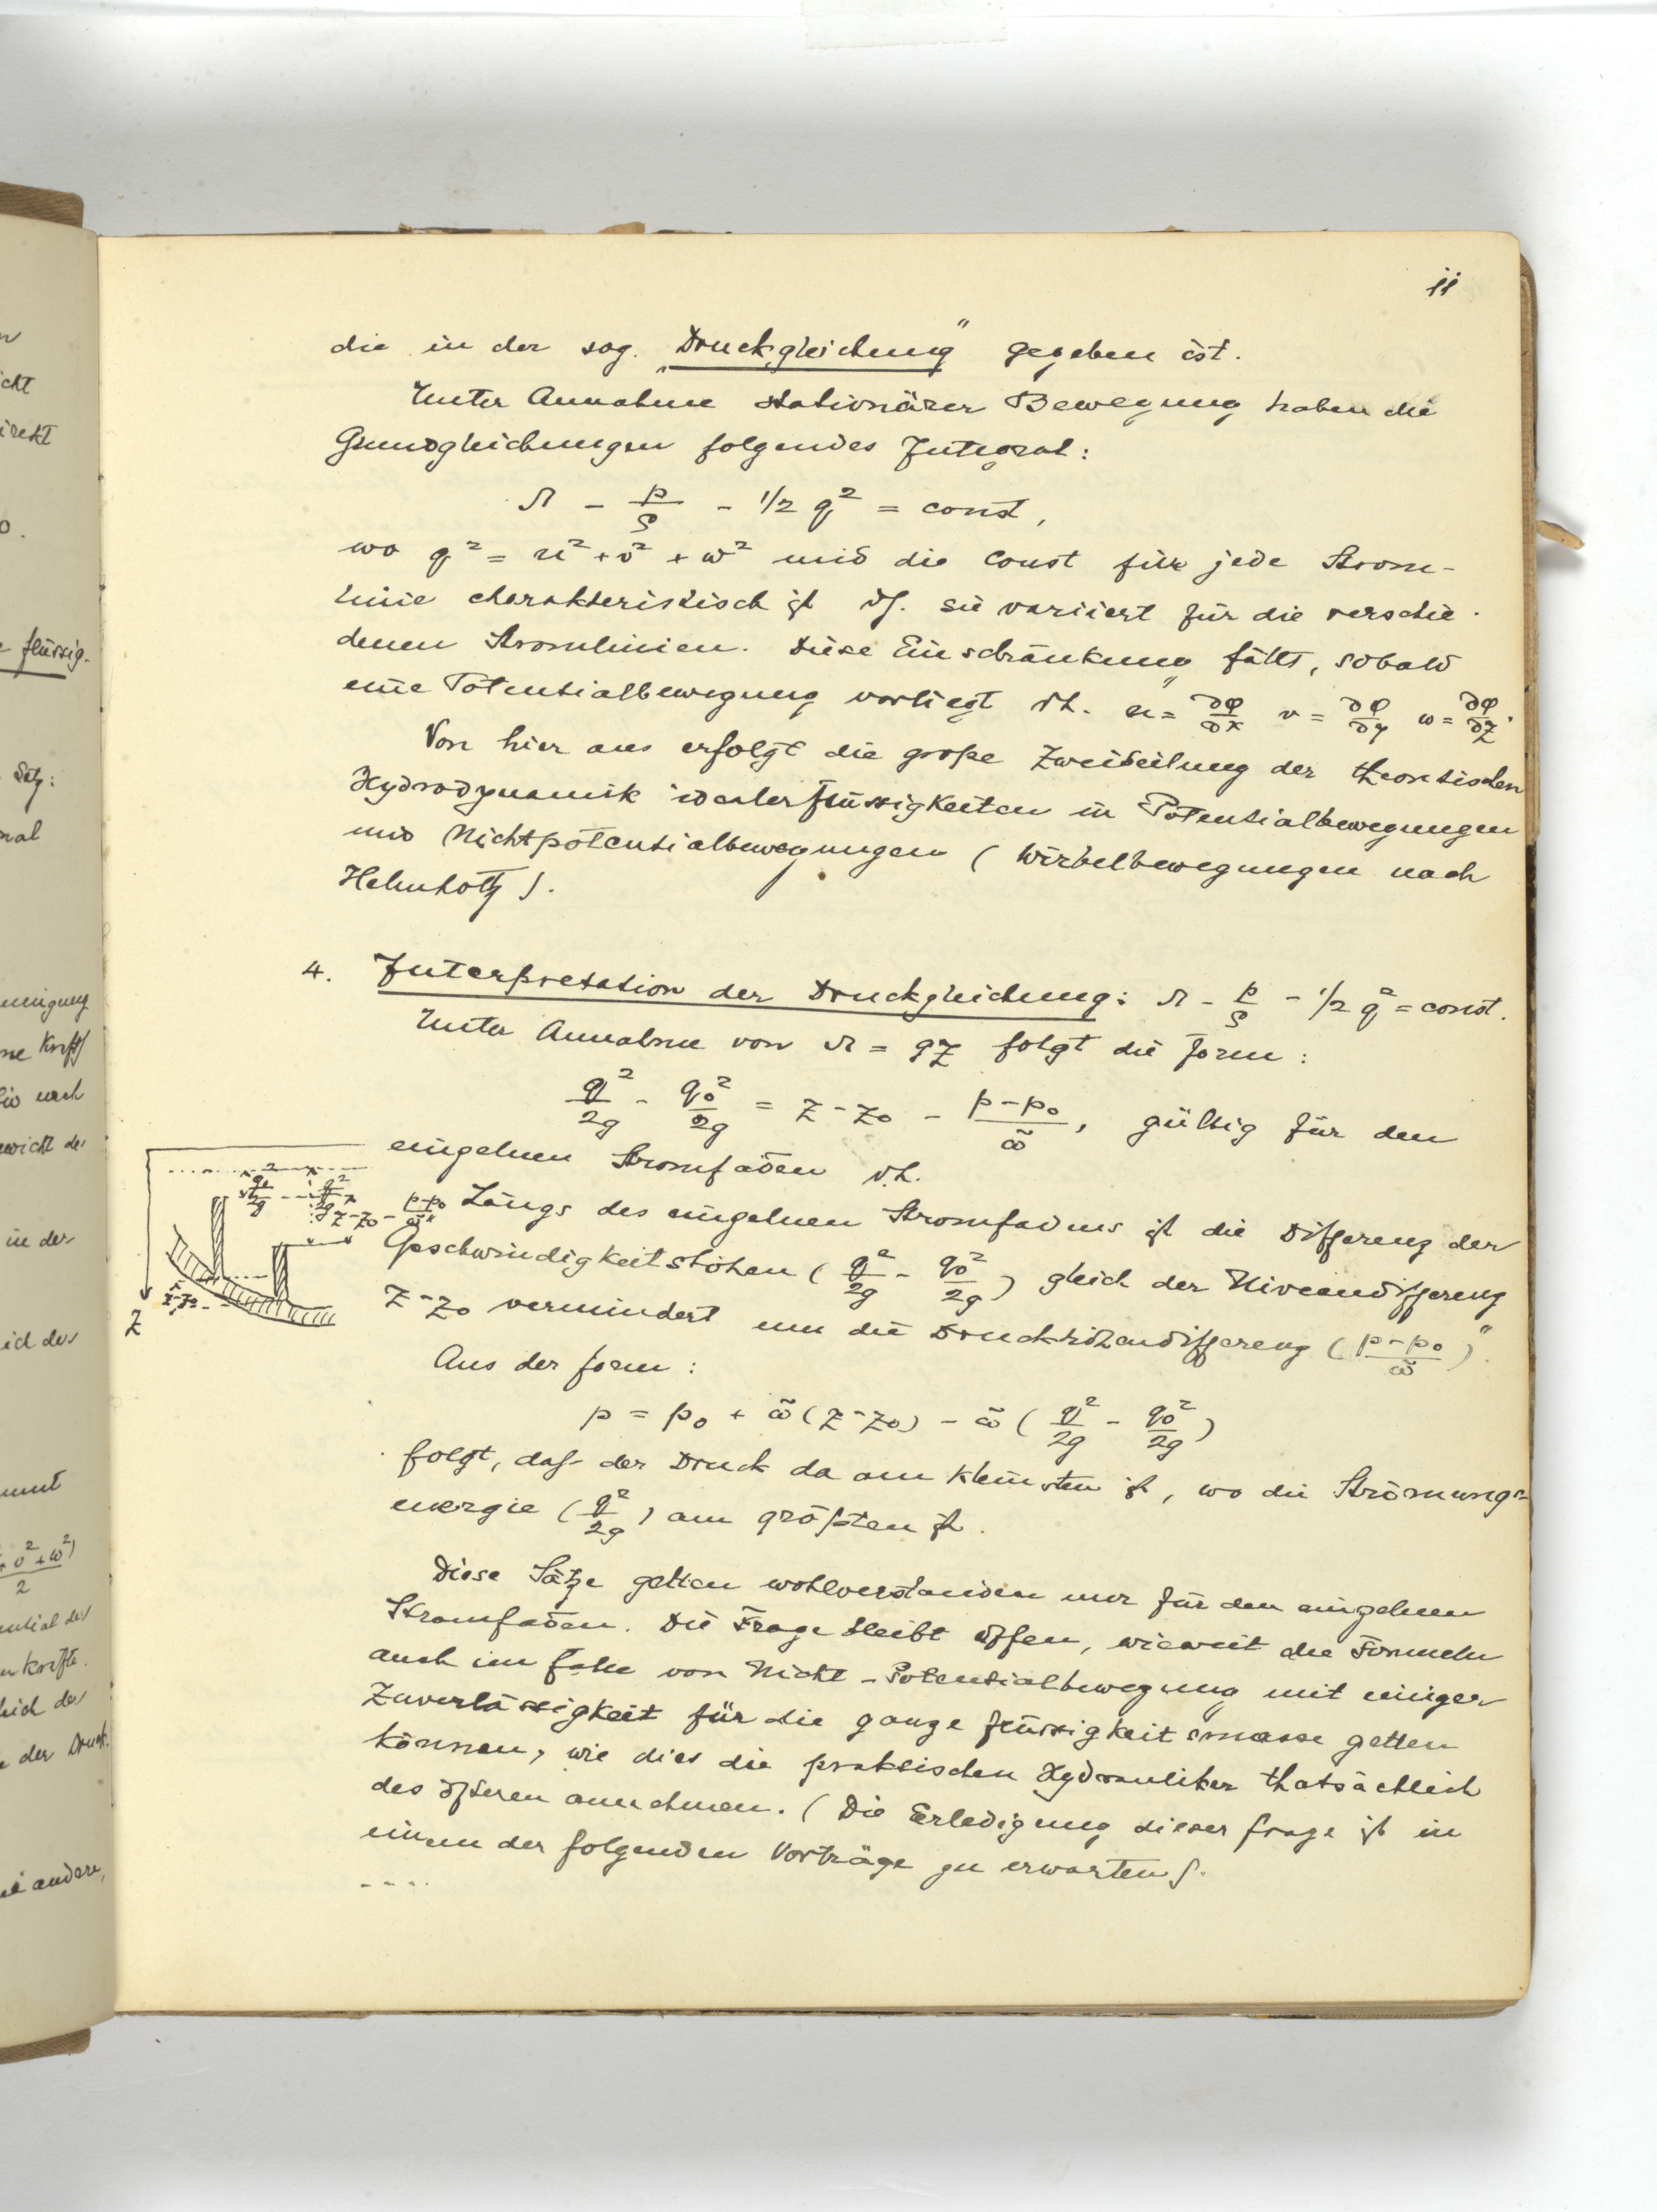 11
die in der sog. „Druckgleichung" gegeben ist.
Unter Annahme stationärer Bewegung haben die
Grundgleichungen folgendes Integral:
Ω - p/ρ - 1/2 q² = const,
wo q² = u² + v² + w² und die Const für jede Strom-
linie charakteristisch ist dh. sie variiert für die verschie-
denen Stromlinien. Diese Einschränkung fällt, sobald
eine Potentialbewegung vorliegt dh. u = ∂φ/∂x v = ∂φ/∂y w = ∂φ/∂z.
Von hier aus erfolgt die große Zweiteilung der theoretischen
Hydrodynamik idealer Flüssigkeiten in Potentialbewegungen
und Nichtpotentialbewegungen (Wirbelbewegungen nach
Helmholtz).
4. Interpretation der Druckgleichung: Ω - p/ρ - 1/2 q² = const.
Unter Annahme von Ω = gz folgt die Form:
q²/2g - q₀²/2g = z - z₀ - (p-p₀)/ω̃, gültig für den
einzelnen Stromfaden d.h.
„Längs des einzelnen Stromfadens ist die Differenz der
Geschwindigkeitshöhen (q²/2g - q₀²/2g) gleich der Niveaudifferenz
z-z₀ vermindert um die Druckhöhendifferenz ((p-p₀)/ω̃)".
q₀²/2g
q²/2g
z-z₀ - (p-p₀)/ω̃
z-z₀
z
Aus der Form:
p = p₀ + ω̃(z-z₀) - ω̃(q²/2g - q₀²/2g)
folgt, daß der Druck da am kleinsten ist, wo die Strömungs-
energie (q²/2g) am größten ist.
Diese Sätze gelten wohlverstanden nur für den einzelnen
Stromfaden. Die Frage bleibt offen, wieweit die Formeln
auch im Falle von Nicht-Potentialbewegung mit einiger
Zuverlässigkeit für die ganze Flüssigkeitsmasse gelten
können, wie dies die praktischen Hydrauliker thatsächlich
des öfteren annehmen. (Die Erledigung dieser Frage ist in
einem der folgenden Vorträge zu erwarten).
----.